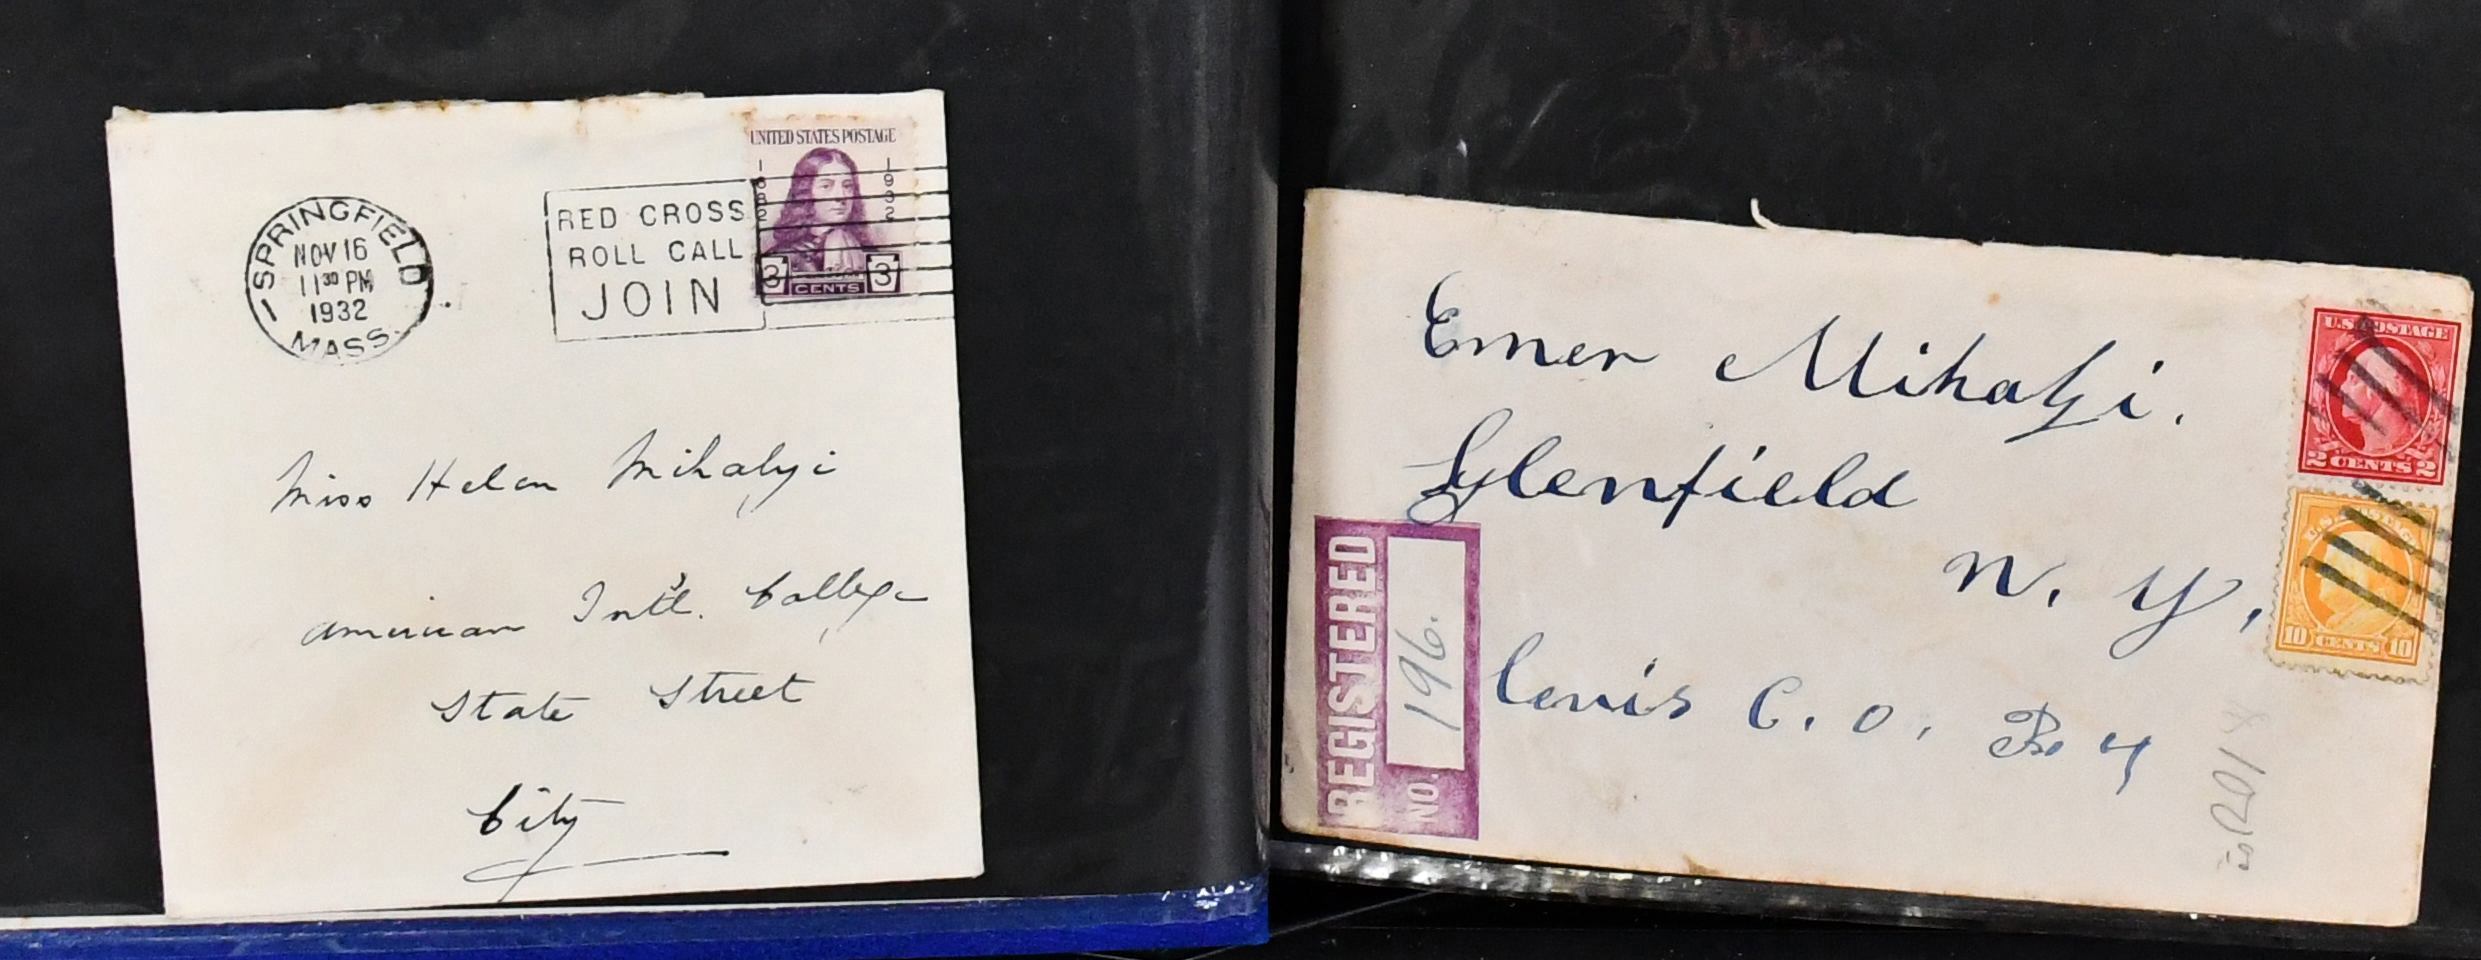 SPRINGFIELD
NOV 16
11 30 PM
1932
MASS.
RED CROSS
ROLL CALL
JOIN
UNITED STATES POSTAGE
1682 1932
3 3
CENTS
Miss Helen Mihalyi
American Int'l. College
State Street
City
Emer Mihalyi.
Glenfield
N. Y.
Lewis C. O.
REGISTERED
NO. 196.
U.S. POSTAGE
2 CENTS 2
U.S. POSTAGE
10 CENTS 10